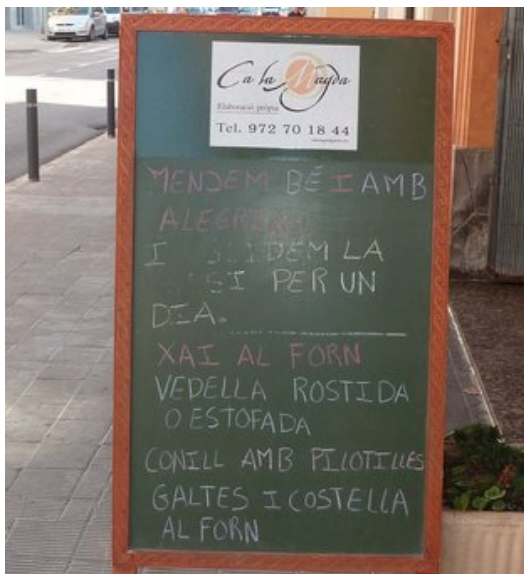 Ca la Magda
Elaboració pròpia
Tel. 972 70 18 44
MENJEM BÉ I AMB
ALEGRIA
I LA
PER UN
DIA.
XAI AL FORN
VEDELLA ROSTIDA
O ESTOFADA
CONILL AMB PILOTILLES
GALTES I COSTELLA
AL FORN